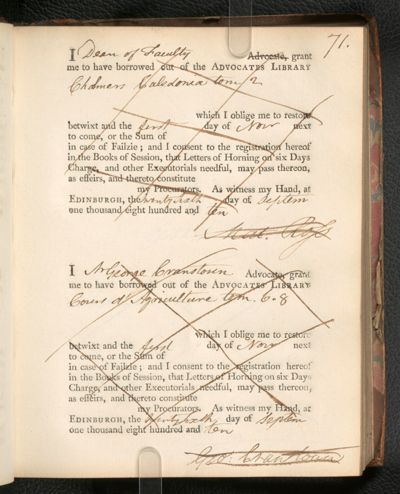 71.
I Dean of Faculty Advocate, grant
me to have borrowed out of the ADVOCATES LIBRARY
Chalmers Caledonia tom 2
which I oblige me to restore
betwixt and the first day of Nov next
to come, or the Sum of
in case of Failzie; and I consent to the registration hereof
in the Books of Session, that Letters of Horning on six Days
Charge, and other Executorials needful, may pass thereon,
as effeirs, and thereto constitute
my Procurators. As witness my Hand, at
EDINBURGH, the twentysixth day of Septem
one thousand eight hundred and ten
I Mr George Cranstoun Advocate, grant
me to have borrowed out of the ADVOCATES LIBRARY
Cours d'Agriculture tom. 6. 8
which I oblige me to restore
betwixt and the first day of Nov next
to come, or the Sum of
in case of Failzie; and I consent to the registration hereof
in the Books of Session, that Letters of Horning on six Days
Charge, and other Executorials needful, may pass thereon,
as effeirs, and thereto constitute
my Procurators. As witness my Hand, at
EDINBURGH, the twentysixth day of Septem
one thousand eight hundred and ten
Geo. Cranstoun